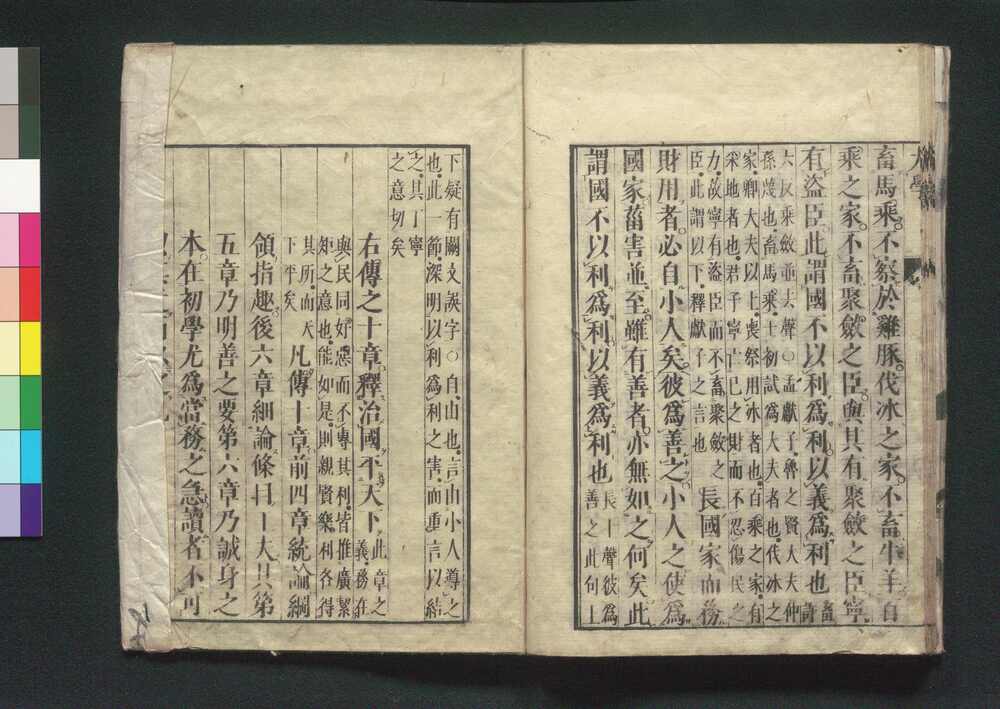 大學
畜馬乘不察於雞豚伐冰之家不畜牛羊百
乘之家不畜聚斂之臣與其有聚斂之臣寧
有盜臣此謂國不以利爲利以義爲利也畜許
六反乘斂並去聲○孟獻子魯之賢大夫仲
孫蔑也畜馬乘士初試爲大夫者也伐冰之
家卿大夫以上喪祭用冰者也百乘之家有
采地者也君子寧亡己之財而不忍傷民之
力故寧有盜臣而不畜聚斂之
臣此謂以下釋獻子之言也長國家而務
財用者必自小人矣彼爲善之小人之使爲
國家菑害並至雖有善者亦無如之何矣此
謂國不以利爲利以義爲利也長上聲彼爲
善之此句上
下疑有闕文誤字○自由也言由小人導之
也此一節深明以利爲利之害而重言以結
之其丁寧
之意切矣
右傳之十章釋治國平天下此章之
義務在
與民同好惡而不專其利皆推廣絜
矩之意也能如是則親賢樂利各得
其所而天
下平矣凡傳十章前四章統論綱
領指趣後六章細論條目工夫其第
五章乃明善之要第六章乃誠身之
本在初學尤爲當務之急讀者不可